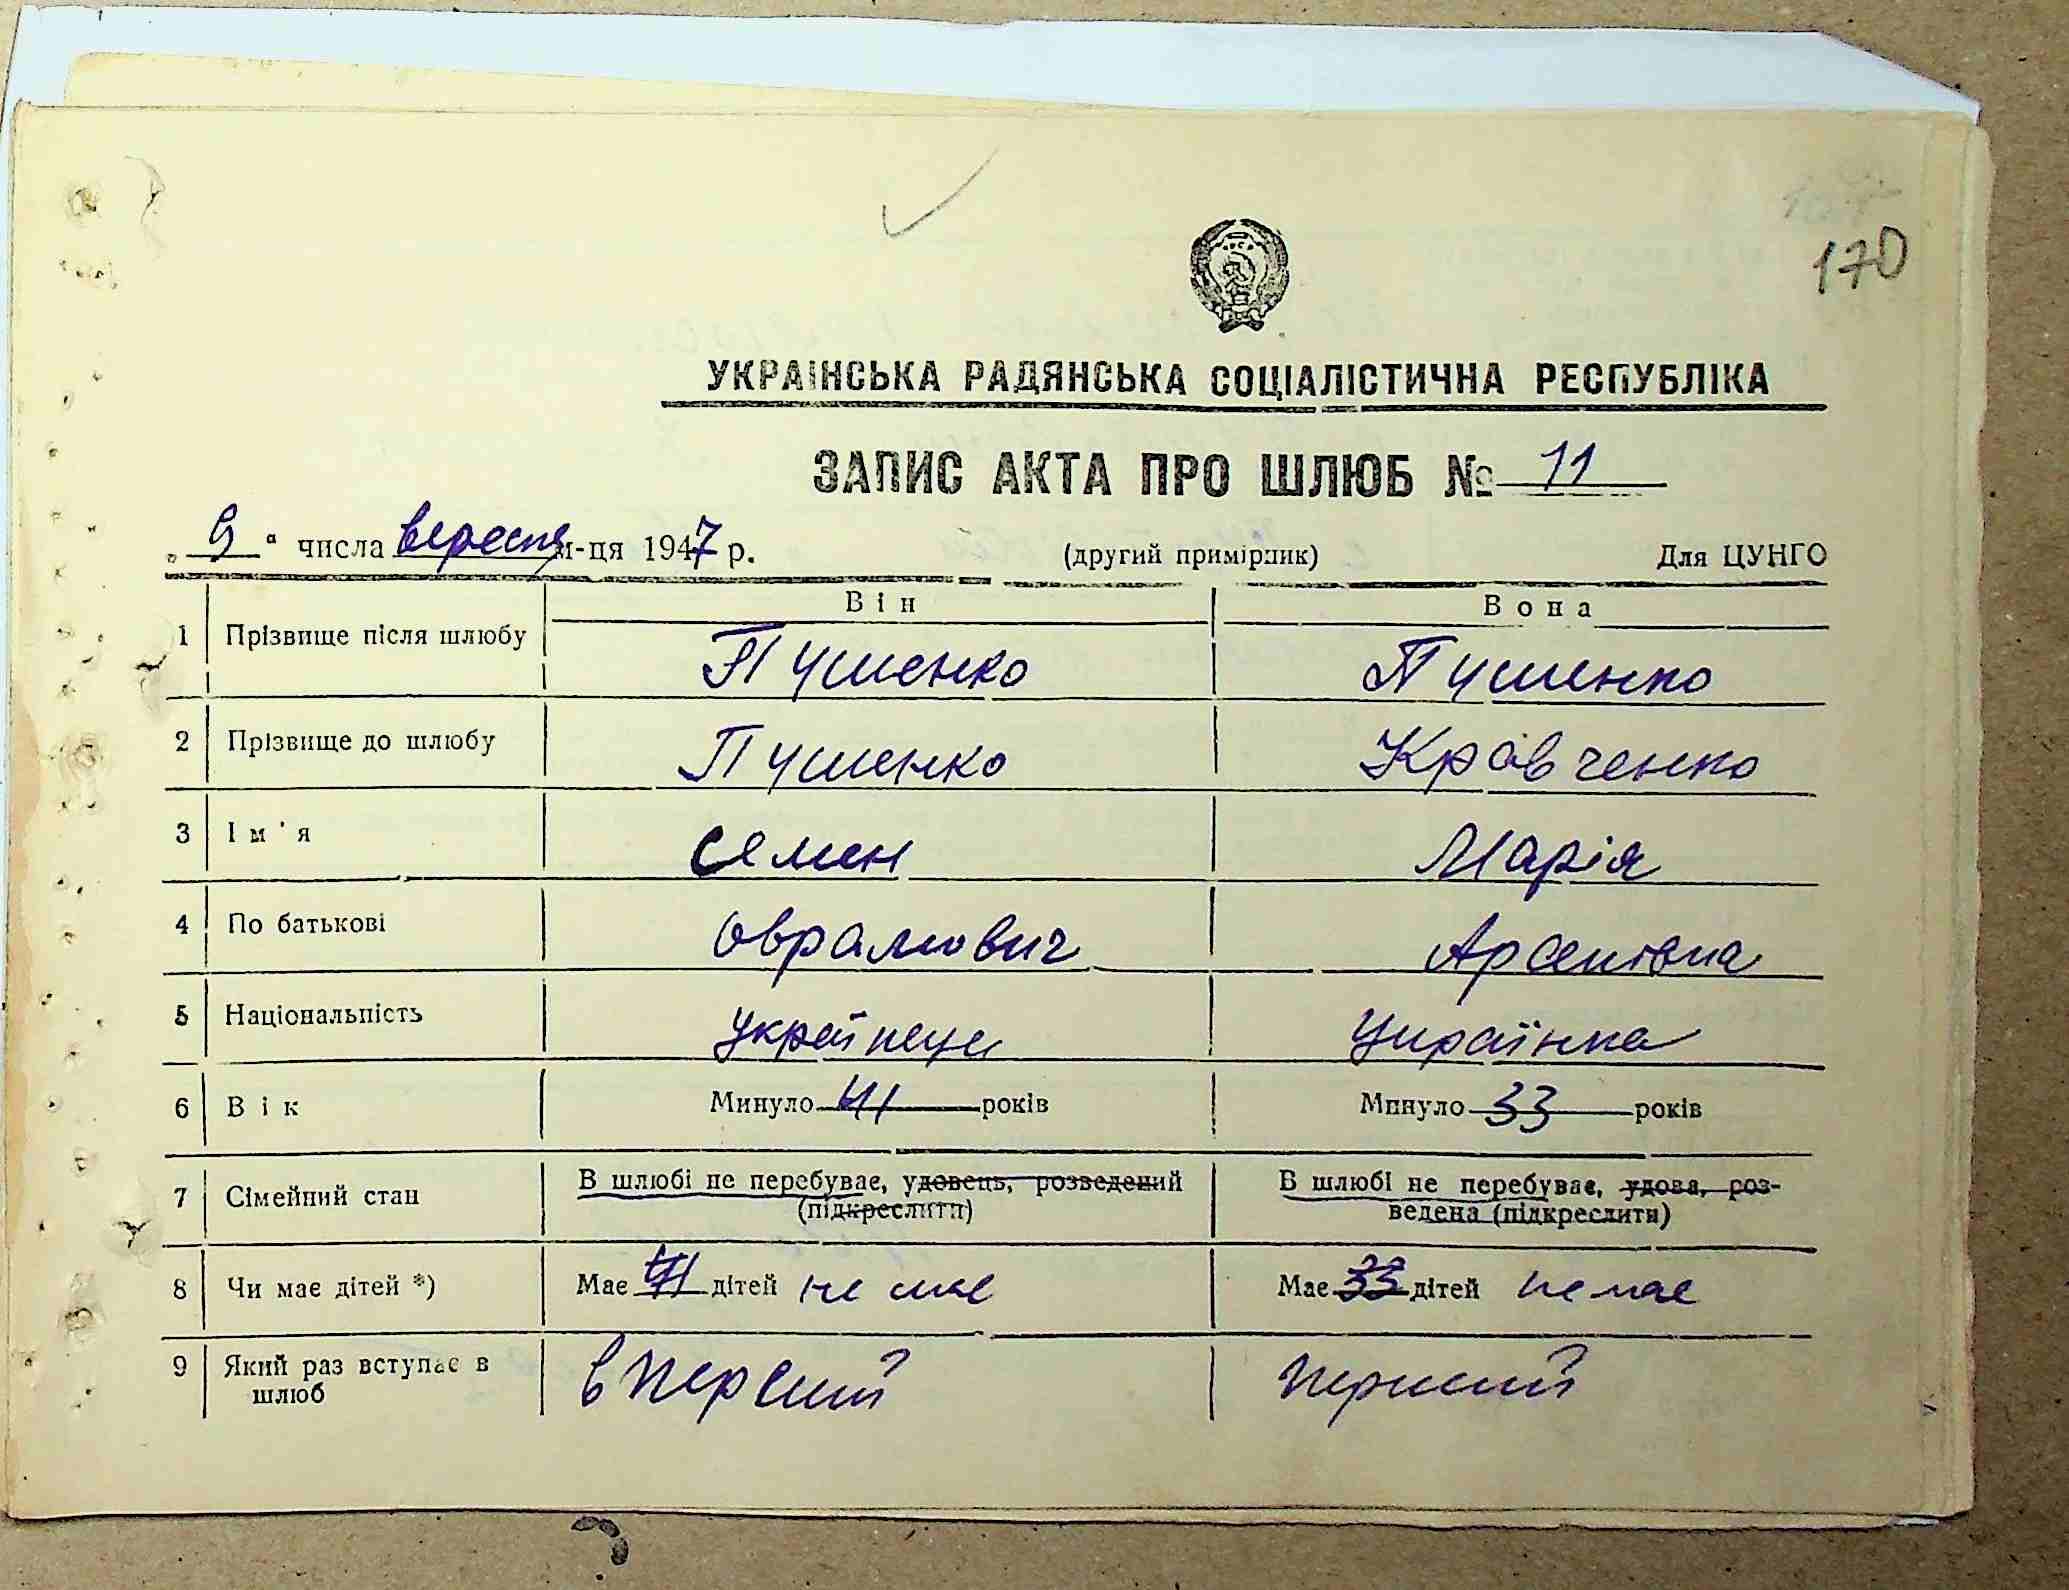 170
УКРАЇНСЬКА РАДЯНСЬКА СОЦІАЛІСТИЧНА РЕСПУБЛІКА
ЗАПИС АКТА ПРО ШЛЮБ № 11
„ 9 " числа вересня м-ця 1947 р. (другий примірник) Для ЦУНГО
Він Вона
1 Прізвище після шлюбу Пушенко Пушенко
2 Прізвище до шлюбу Пушенко Кравченко
3 Ім'я Семен Марія
4 По батькові Оврамович Арсенівна
5 Національність Українець Українка
6 Вік Минуло 41 років Минуло 33 років
7 Сімейний стан В шлюбі не перебуває, удовець, розведений В шлюбі не перебуває, удова, роз-
(підкреслити) ведена (підкреслити)
8 Чи має дітей *) Має 41 дітей не має Має 33 дітей не має
9 Який раз вступає в вперший перший
шлюб